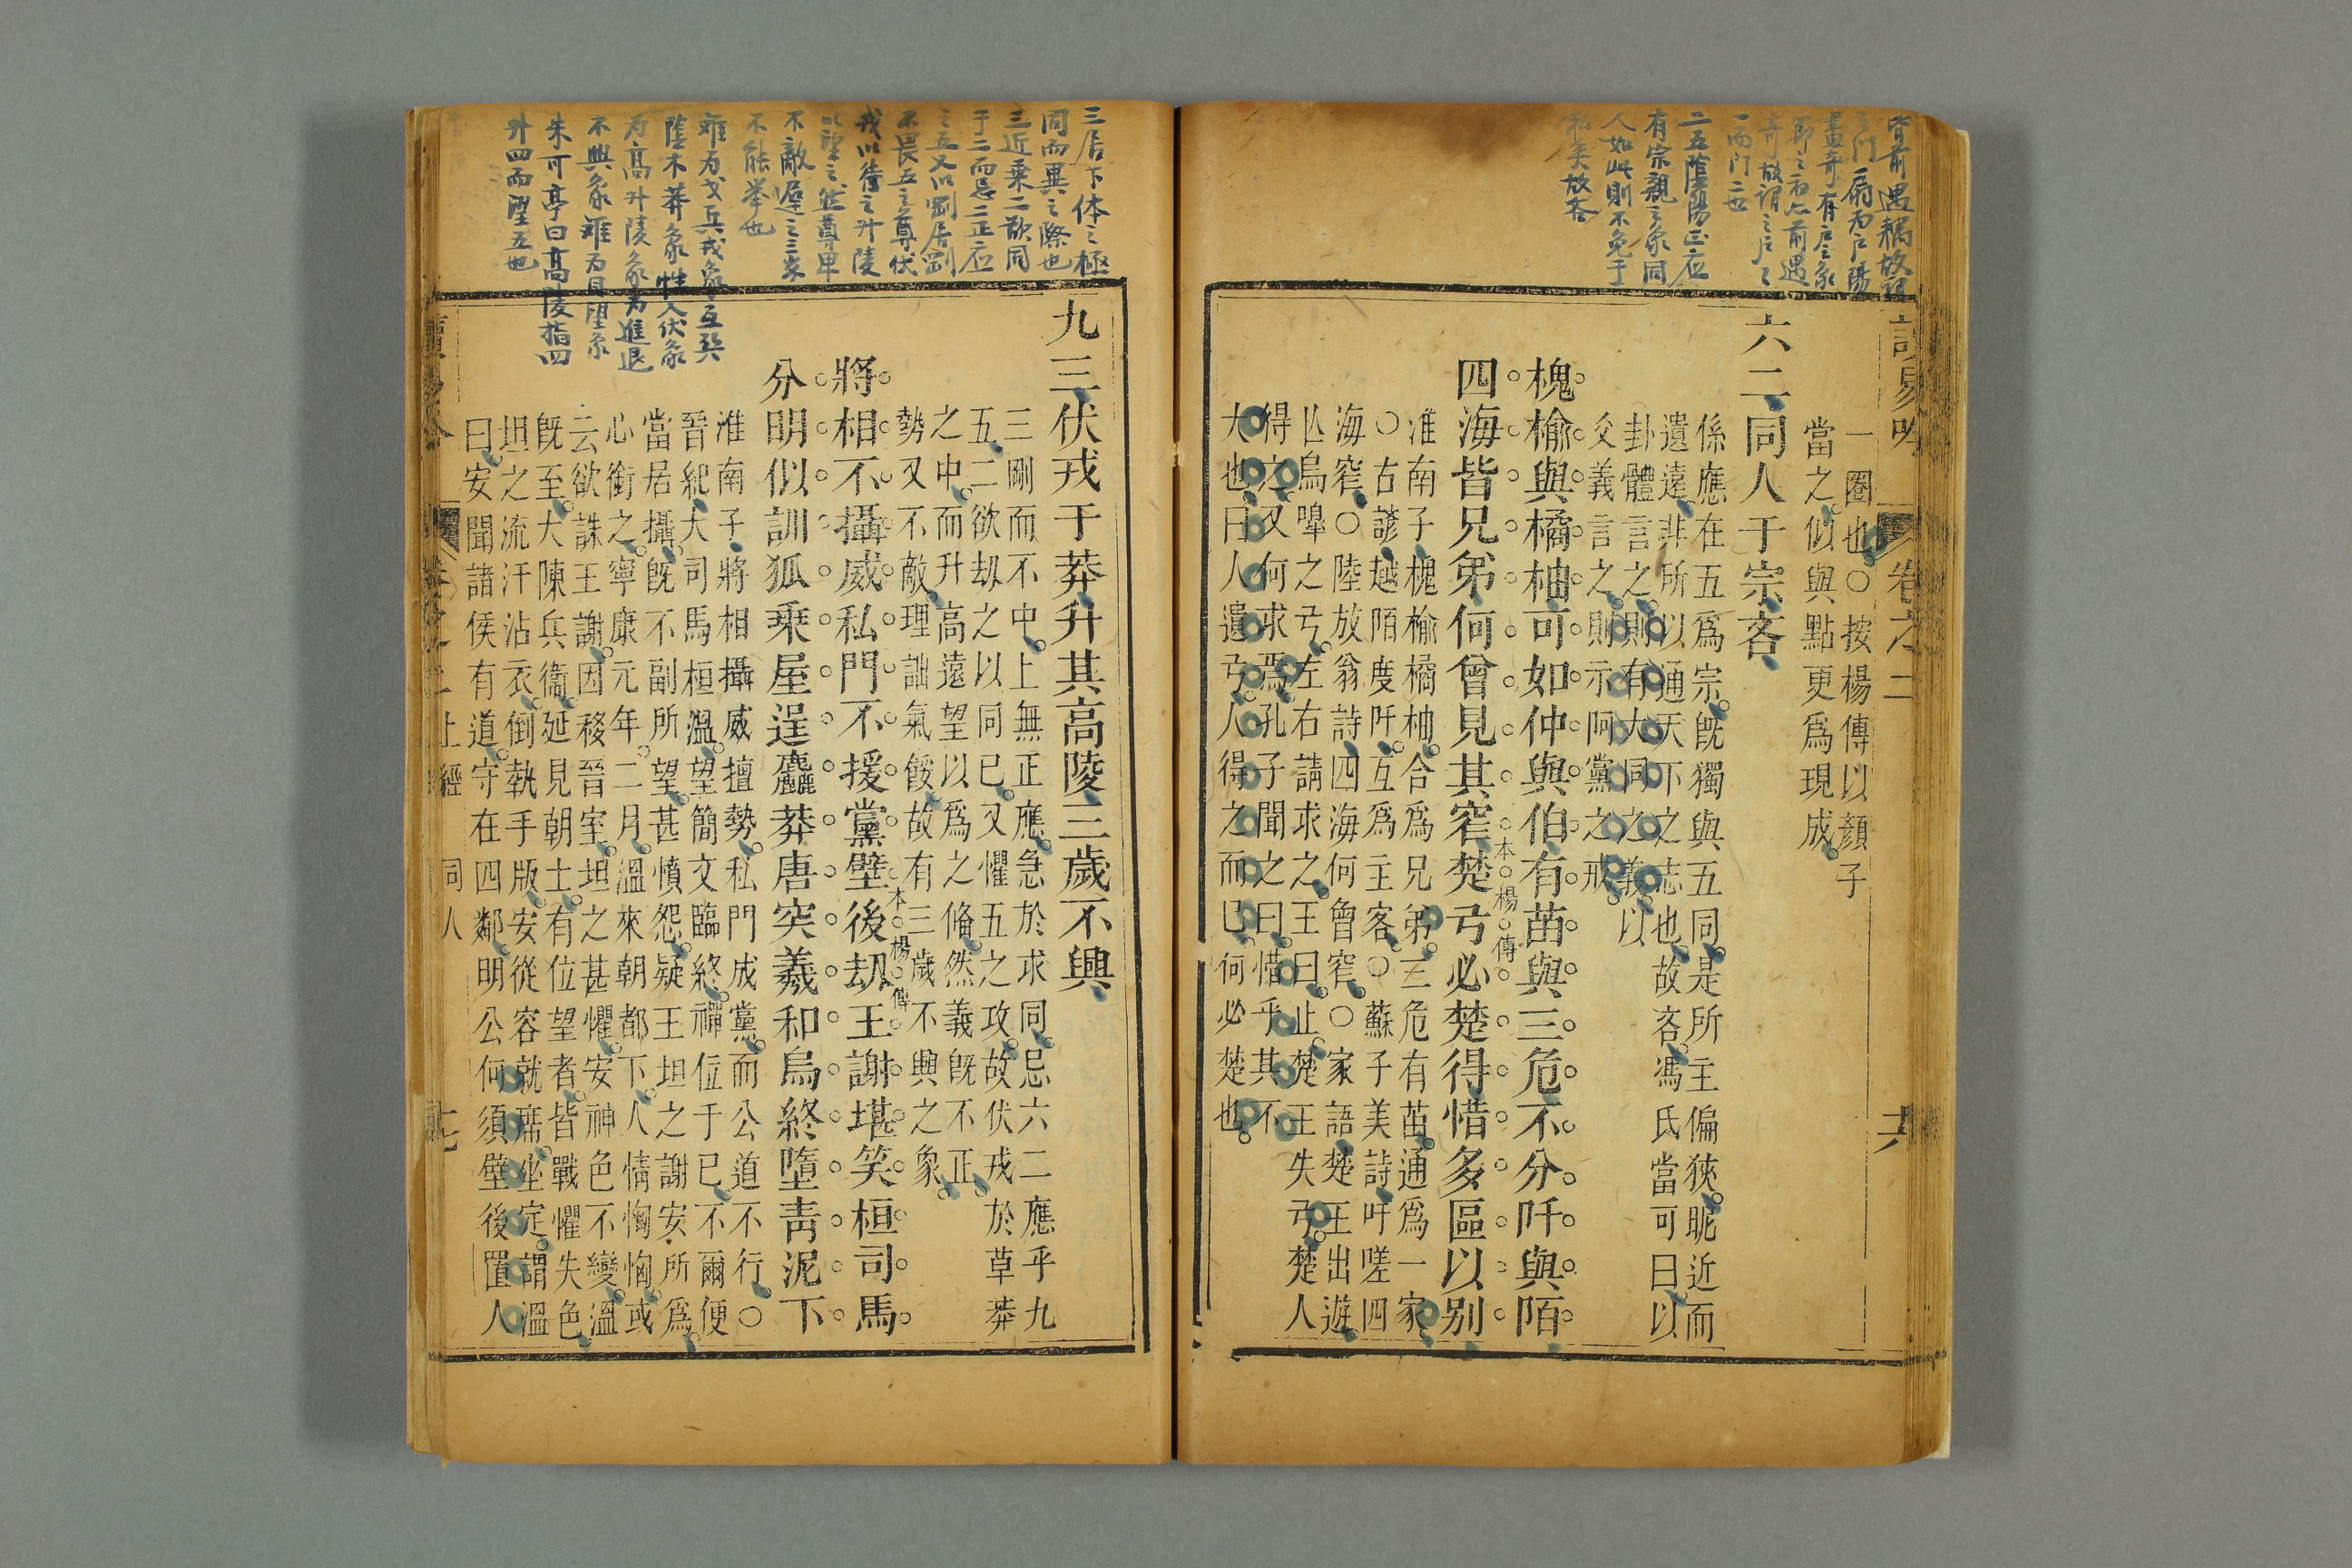 皆前遇耦故謂
之門一扇为户陽
畫奇有户之象
節之初九前遇
奇故謂之户之
一而門二也
二五陰陽正应
有宗親之象同
人如此則不免于
私矣故吝
卷之二
六
一圈也○按楊傳以顏子
當之似與點更爲現成
六二同人于宗吝
係應在五爲宗既獨與五同是所主偏狹昵近而
遺遠非所以通天下之志也故吝馮氏當可曰以
卦體言之則有大同之義以
爻義言之則示阿黨之戒
槐榆與橘柚可如仲與伯有苗與三危不分阡與陌
四海皆兄弟何曾見其窄楚弓必楚得惜多區以别
本楊傳
淮南子槐榆橘柚合爲兄弟三危有苗通爲一家
○古諺越陌度阡互爲主客○蘇子美詩吁嗟四
海窄○陸放翁詩四海何曾窄○家語楚王出遊
亾烏嘷之弓左右請求之王曰止楚王失弓楚人
得之又何求焉孔子聞之曰惜乎其不
大也曰人遺弓人得之而已何必楚也
三居下体之極
同而異之際也
三近乗二欲同
于二而忌二正应
之五又以剛居剛
不畏五之尊伏
戎以待之升陵
以望之然尊卑
不敵遲之三歲
不能舉也
離为戈兵戎象互巽
陰木莽象性入伏象
为高升陵象为進退
不興象離为目望象
朱可亭曰高陵指四
升四而望五也
九三伏戎于莽升其高陵三歲不興
三剛而不中上無正應急於求同忌六二應乎九
五二欲刼之以同已又懼五之攻故伏戎於草莽
之中而升高遠望以爲之脩然義既不正
勢又不敵理詘氣餒故有三歲不興之象
將相不攝威私門不援黨壁後刼王謝堪笑桓司馬
本楊傳
分明似訓狐乗屋逞麤莽唐突羲和烏終墮靑泥下
淮南子將相攝威擅勢私門成黨而公道不行○
晉紀大司馬桓溫望簡文臨終禪位于已不爾便
當居攝既不副所望甚憤怨疑王坦之謝安所爲
心銜之寧康元年二月溫來朝都下人情恟恟或
云欲誅王謝因移晉室坦之甚懼安神色不變溫
既至大陳兵衞延見朝士有位望者皆戰懼失色
坦之流汗沾衣倒執手版安從容就席坐定謂溫
曰安聞諸侯有道守在四鄰明公何須壁後置人
上經
同人
七